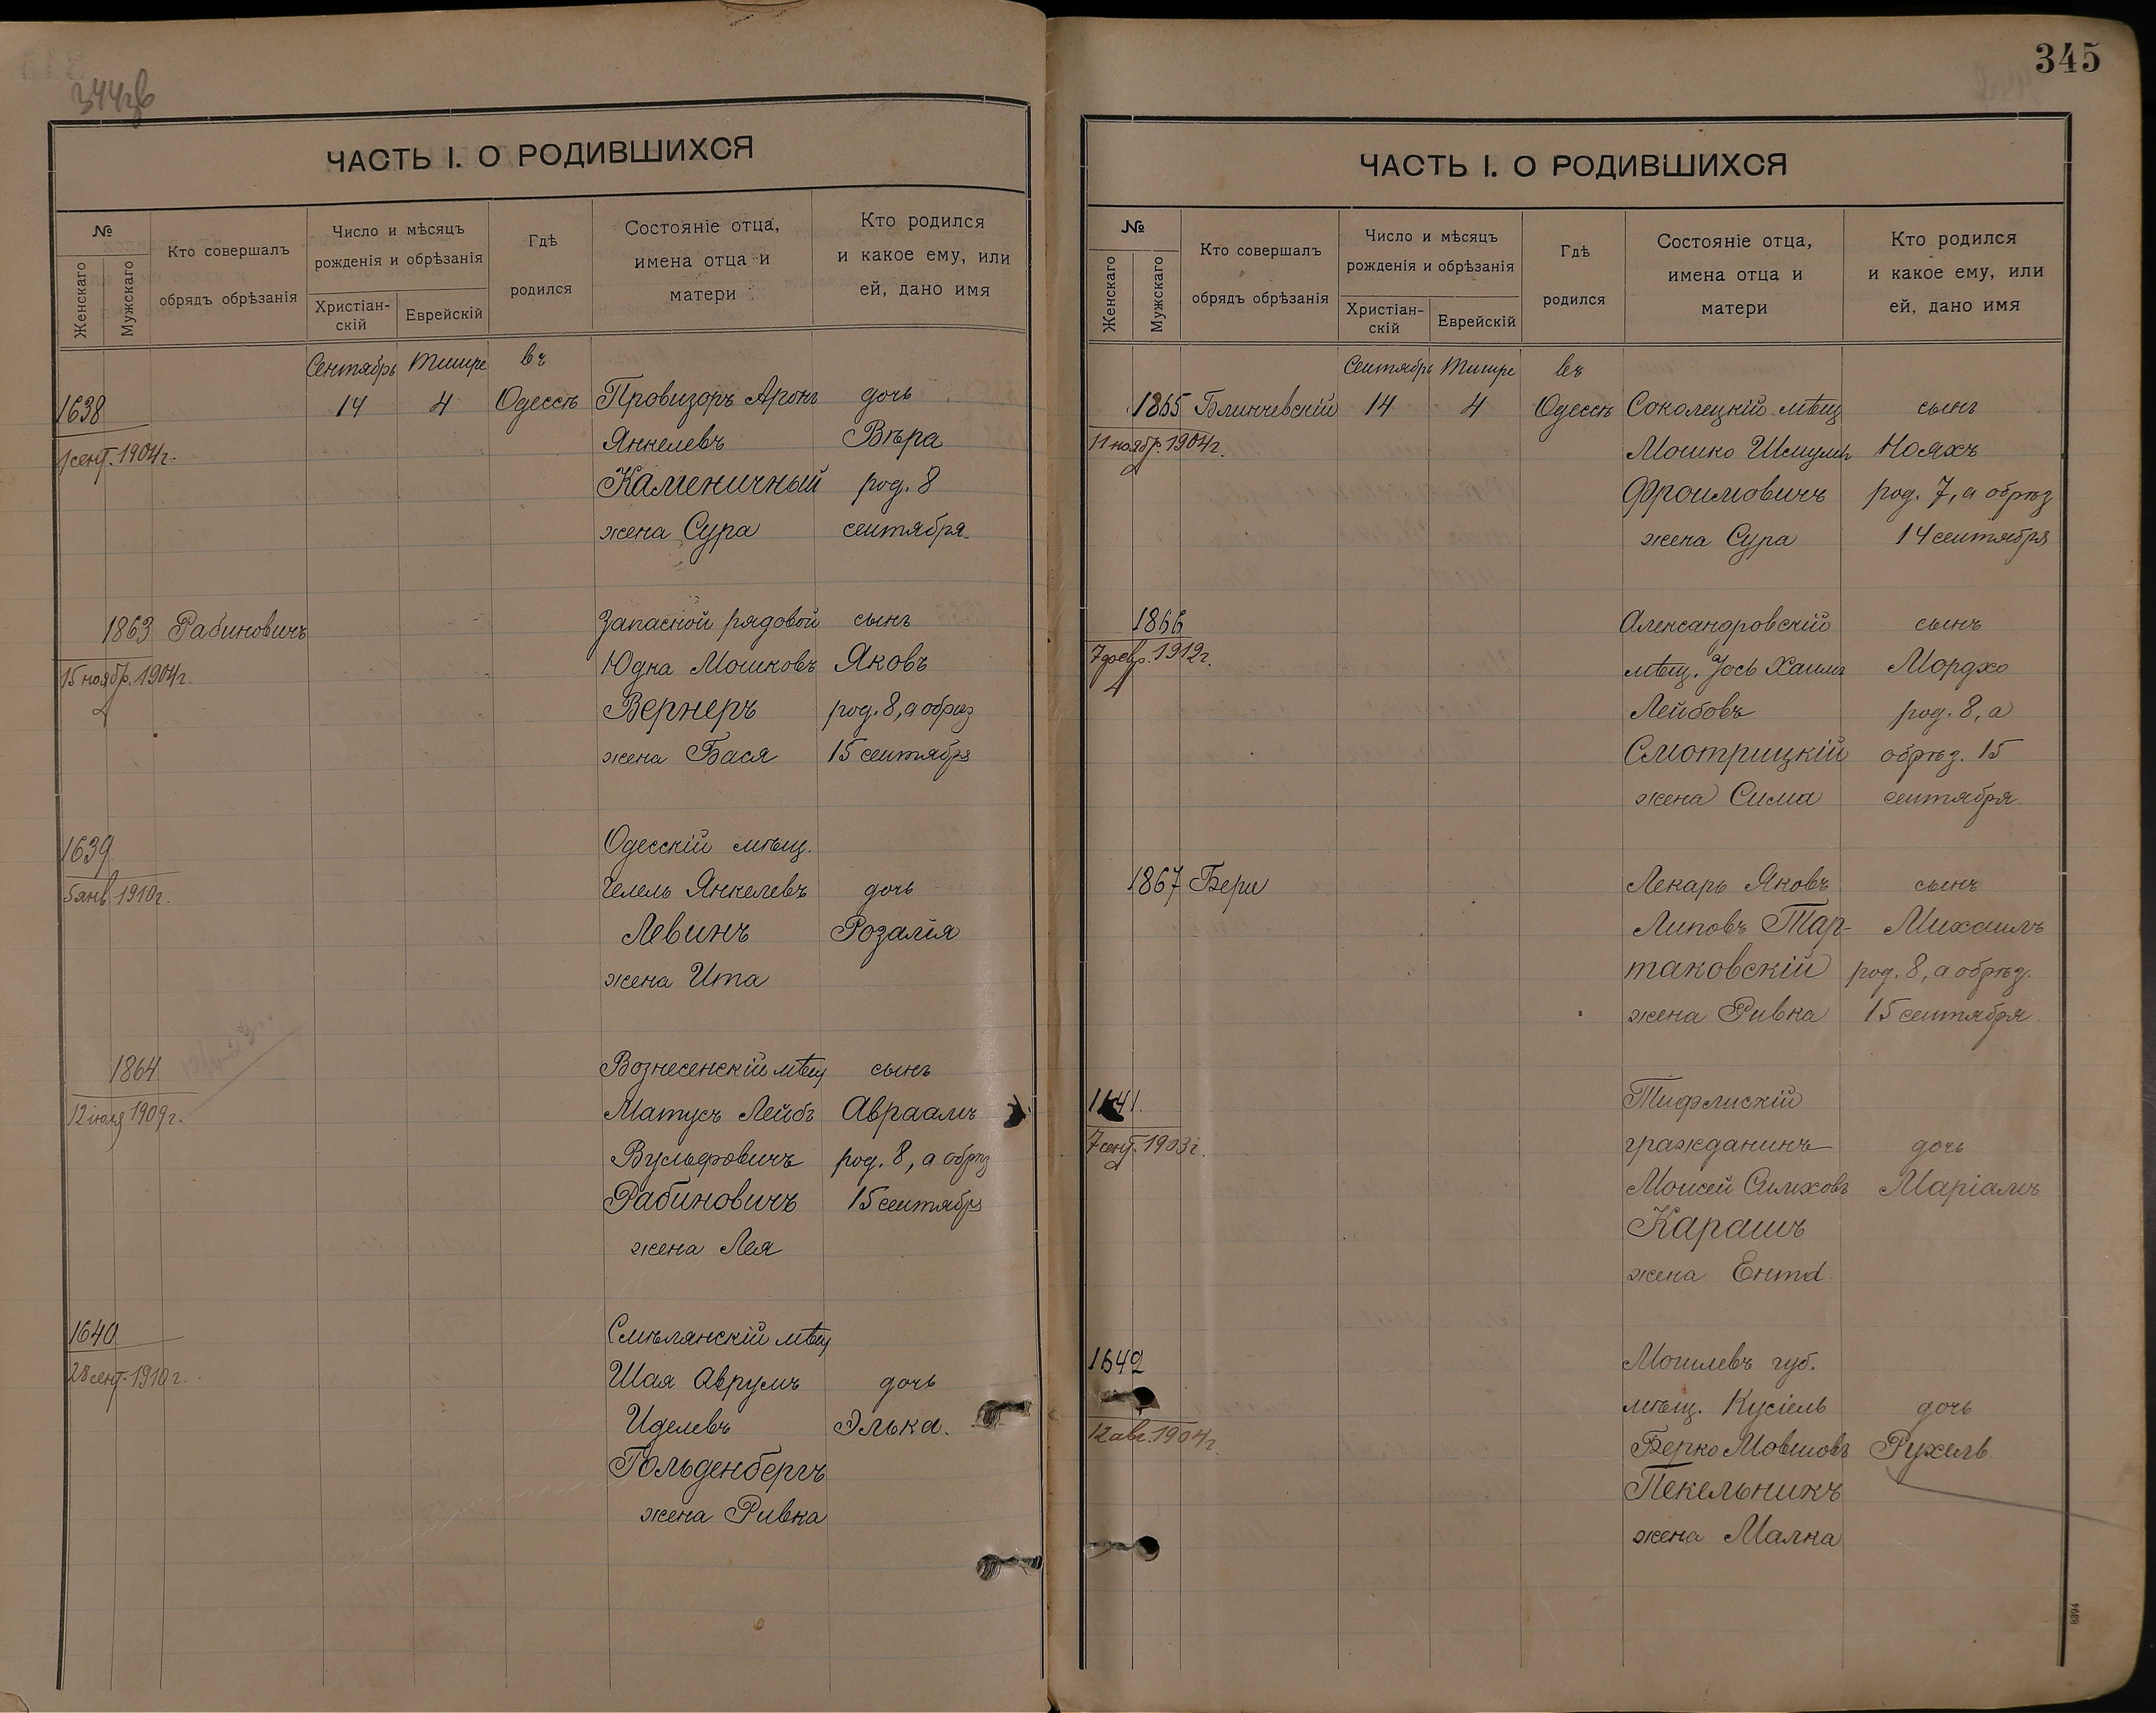 344 об
ЧАСТЬ I. О РОДИВШИХСЯ
№
Женскаго
Мужскаго
Кто совершалъ
обрядъ обрѣзанія
Число и мѣсяцъ
рожденія и обрѣзанія
Христіан-
скій
Еврейскій
Гдѣ
родился
Состояніе отца,
имена отца и
матери
Кто родился
и какое ему, или
ей, дано имя
Сентябрь Тишре въ
1638 14 4 Одессѣ Провизоръ Аронъ дочь
1 сент. 1904 г. Янкелевъ Вѣра
Каменичный род. 8
жена Сура сентября
1863 Рабиновичъ Запасной рядовой сынъ
15 ноябр. 1904 г. Юдка Мошковъ Яковъ
Вернеръ род. 8, а обрѣз
жена Бася 15 сентябр
1639 Одесскій мѣщ.
5 янв 1910 г. Янкелевъ дочь
Левинъ Розалія
жена Ита
1864 Вознесенскій мѣщ сынъ
12 июля 1909 г. Матусъ Лейбъ Авраамъ
Вульфовичъ род. 8, а обрѣз
Рабиновичъ 15 сентябр
жена Лея
1640 Смѣлянскій мѣщ
28 сент. 1910 г. Шая Аврумъ дочь
Иделевъ Элька.
Гольденбергъ
жена Ривка
345
ЧАСТЬ I. О РОДИВШИХСЯ
№
Женскаго
Мужскаго
Кто совершалъ
обрядъ обрѣзанія
Число и мѣсяцъ
рожденія и обрѣзанія
Христіан-
скій
Еврейскій
Гдѣ
родился
Состояніе отца,
имена отца и
матери
Кто родился
и какое ему, или
ей, дано имя
Сентябрь Тишре въ
1865 Блинчевскій 14 4 Одессѣ Соколецкій мѣщ сынъ
11 ноябр. 1904 г. Мошко Шмуль Нояхъ
Фроимовичъ род. 7, а обрѣз
жена Сура 14 сентября
1866 Александровскій сынъ
7 февр. 1912 г. мѣщ. Іось Хаимъ Мордхо
Лейбовъ род. 8, а
Смотрицкій обрѣз. 15
жена Сима сентября
1867 Бери Лекарь Яковъ сынъ
Липовъ Тар- Михаилъ
таковскій род. 8, а обрѣз.
жена Ривка 15 сентября
1641. Тифлискій
7 сент. 1903 г. гражданинъ дочь
Моисей Симховъ Маріамъ
Карашъ
жена Ента
1642 Могилевъ губ.
мѣщ. Кусіель дочь
12 авг. 1904 г. Берко Мовшовъ Рухель
Пекельникъ
жена Малка
8394